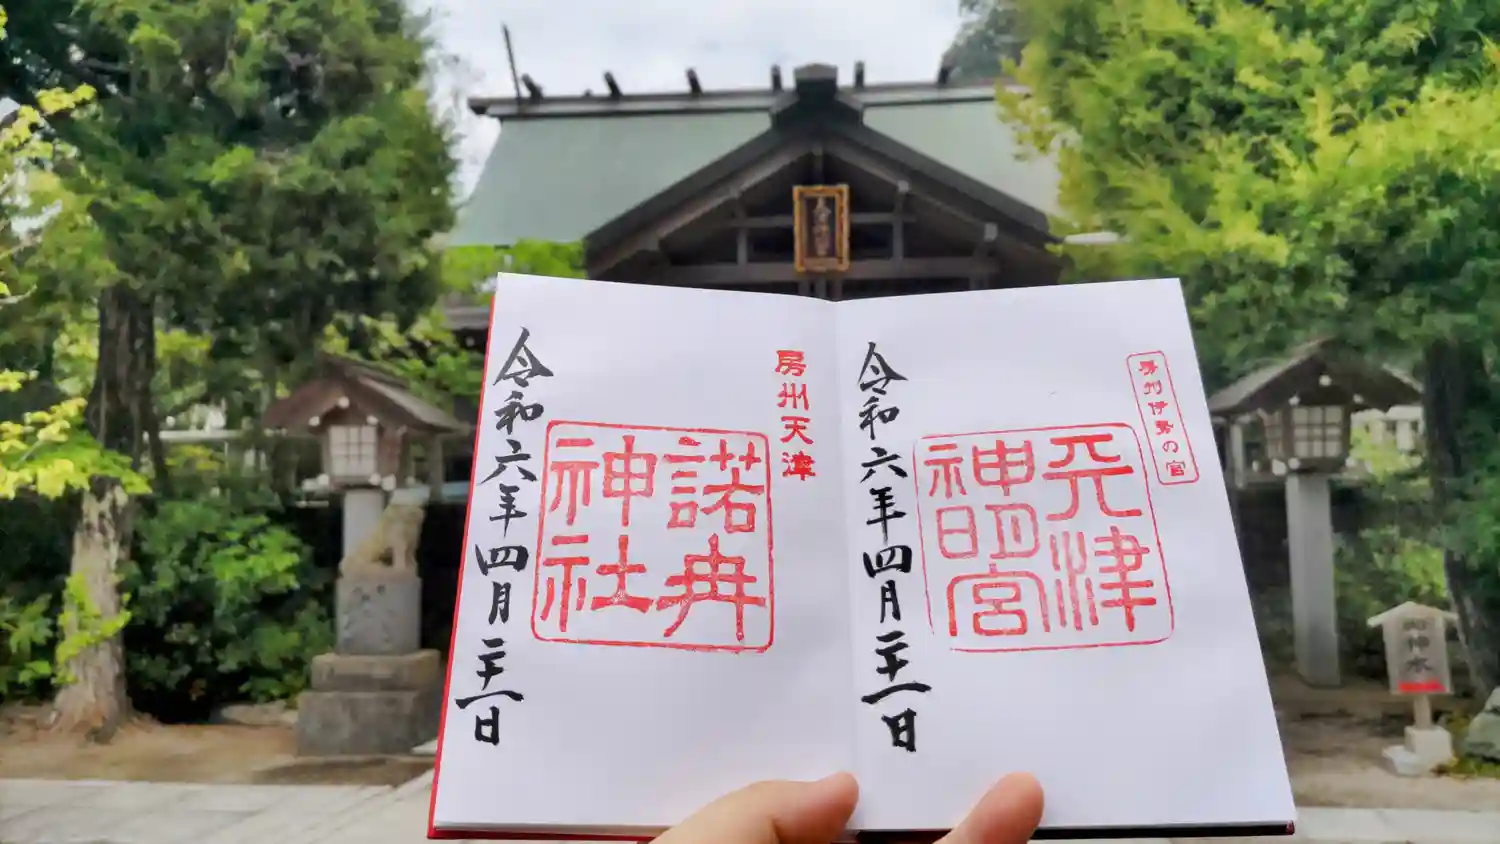 房州伊勢の宮
天津
神明宮
令和六年四月二十一日
房州天津
諾冉
神社
令和六年四月二十一日
御神水